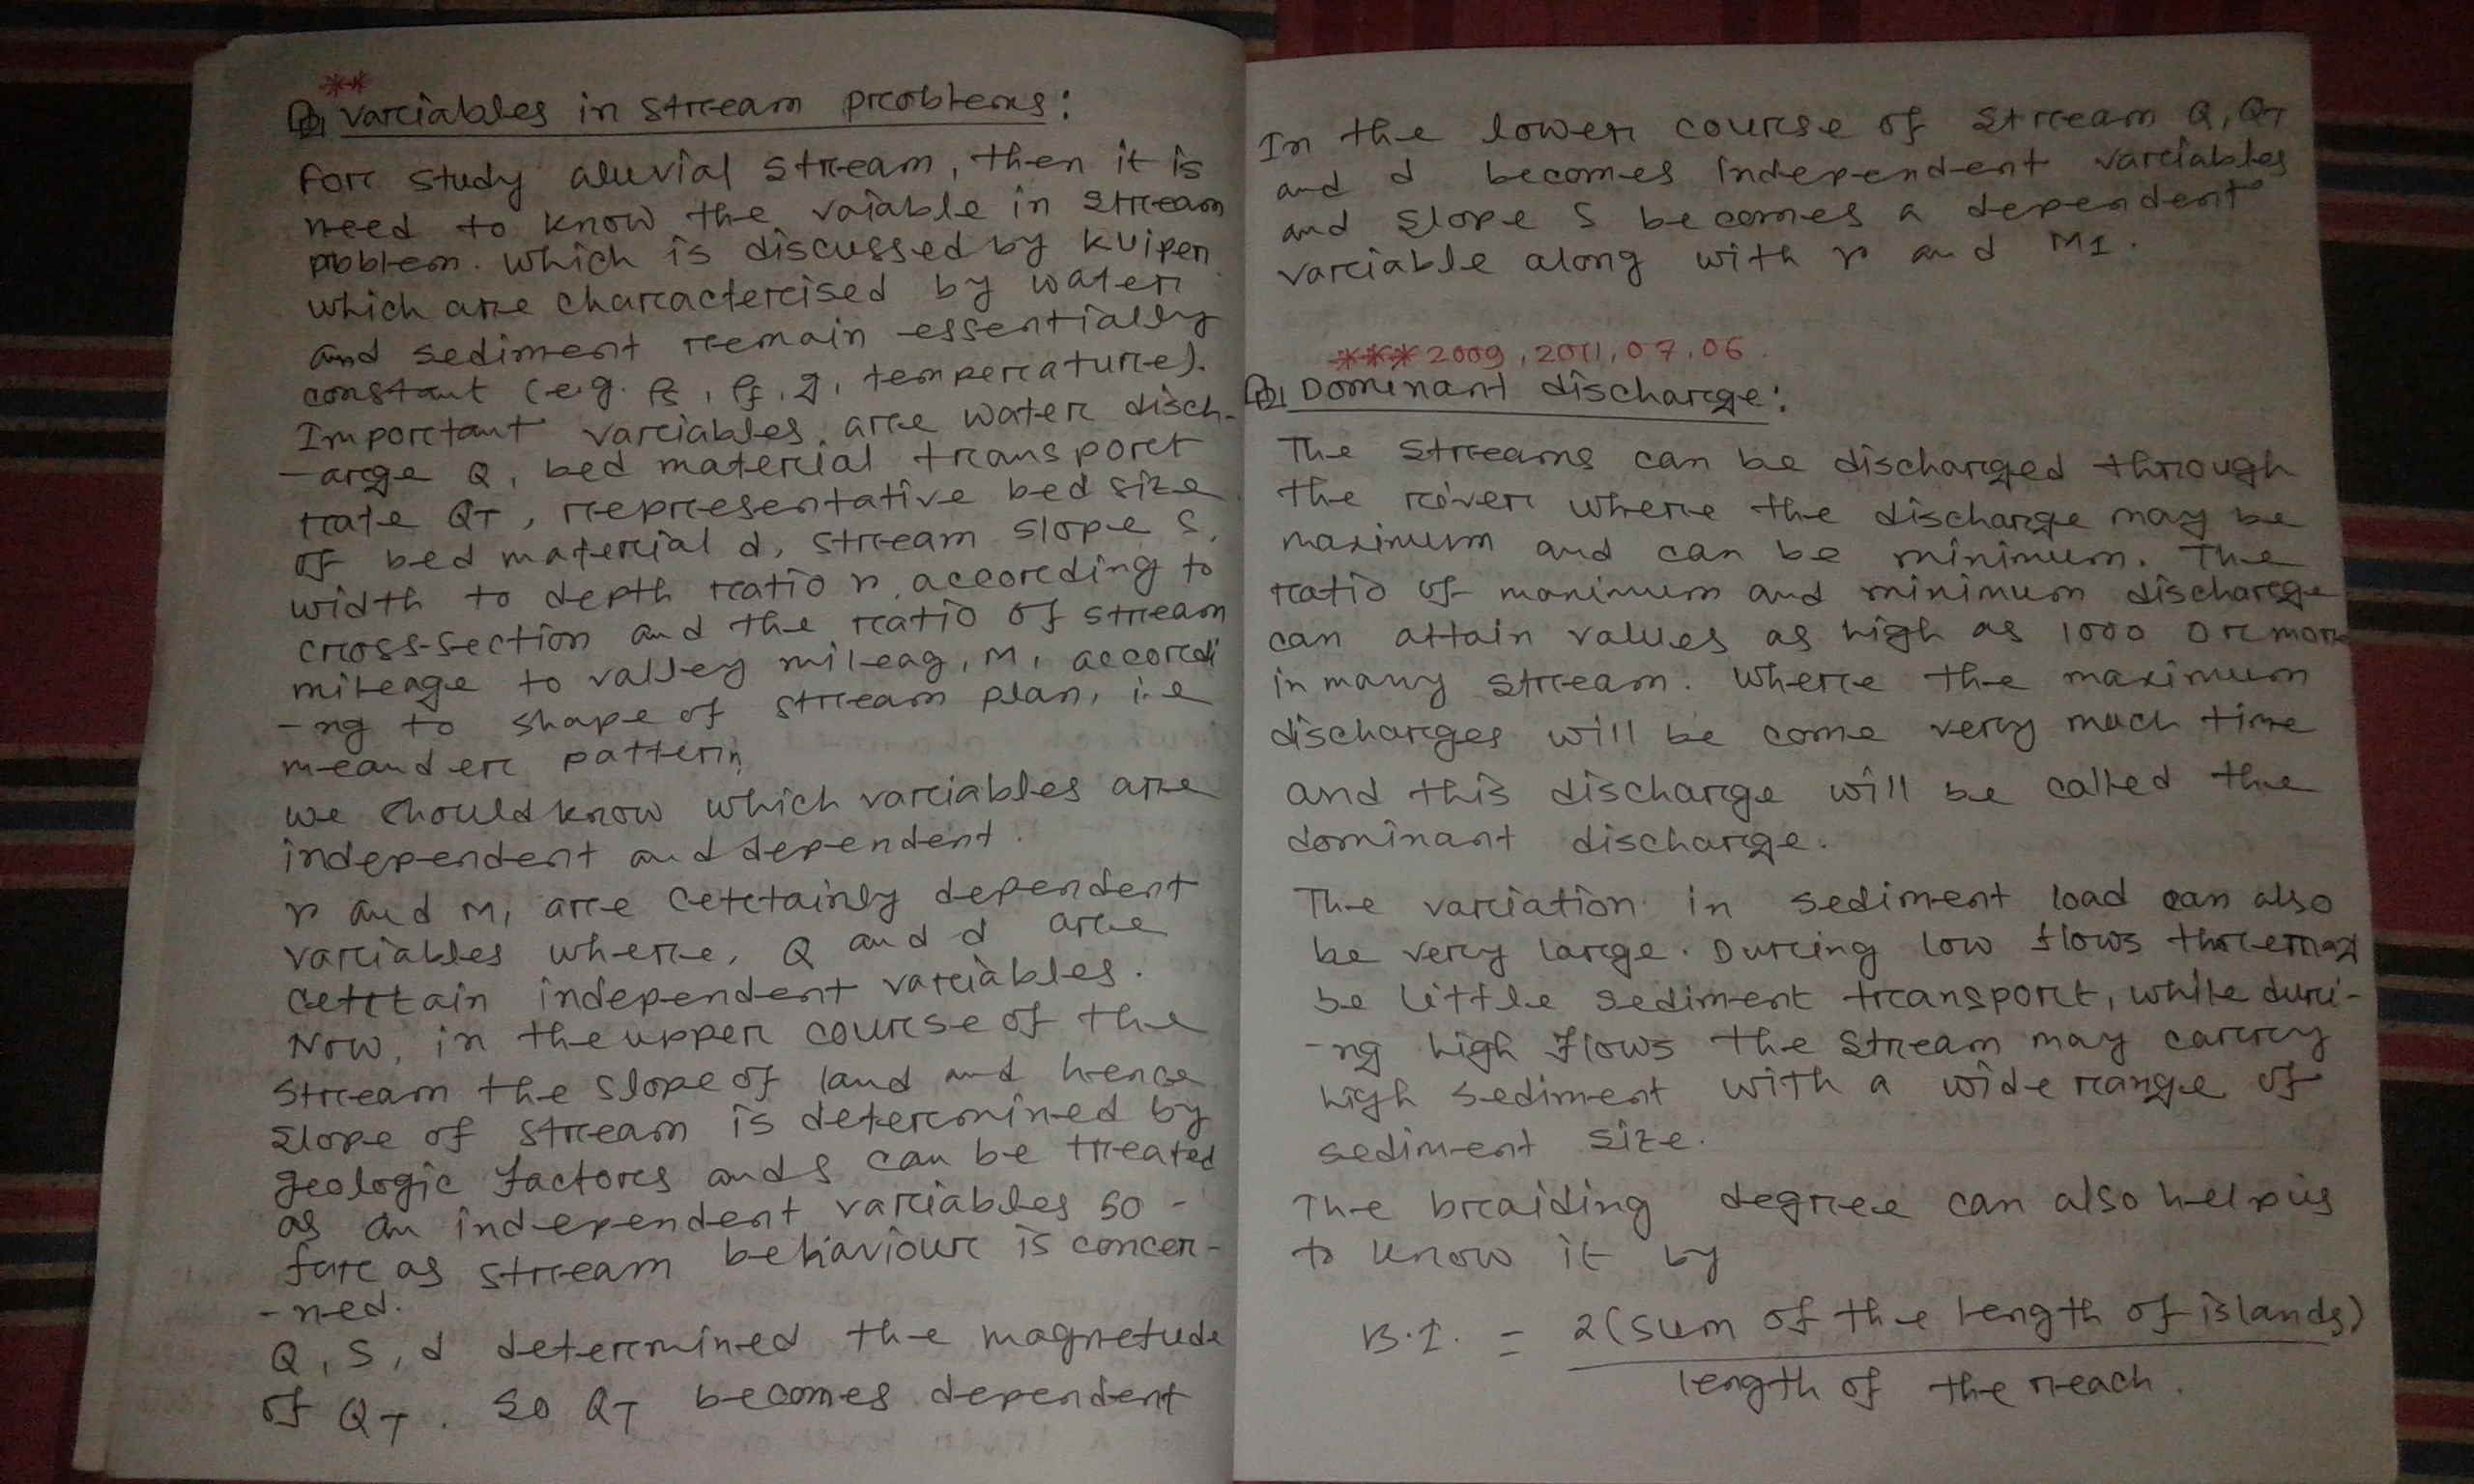 **
Variables in stream problems:
For study aluvial stream, then it is
need to know the vaiable in stream
problem. which is discussed by Kuiper.
which are characterised by water
and sediment remain essentially
constant (e.g. ρs, ρf, g, temperature).
Important variables are water disch-
-arge Q, bed material transport
rate QT, representative bed size
of bed material d, stream slope S,
width to depth ratio r, according to
cross-section and the ratio of stream
mileage to valley mileag, M, accordi
-ng to shape of stream plan, i.e
meander pattern
we should know which variables are
independent and dependent.
r and M, are certainly dependent
variables where, Q and d are
certain independent variables.
Now, in the upper course of the
stream the slope of land and hence
slope of stream is determined by
geologic factors and S can be treated
as an independent variables so -
far as stream behaviour is concer-
-ned.
Q, S, d determined the magnetude
of QT. So QT becomes dependent
In the lower course of stream Q, QT
and d becomes independent variables
and slope S becomes a dependent
variable along with r and M1.
*** 2009, 2011, 07, 06.
Dominant discharge:
The streams can be discharged through
the river where the discharge may be
maximum and can be minimum. The
ratio of maximum and minimum discharge
can attain values as high as 1000 or more
in many stream. Where the maximum
discharges will be come very much time
and this discharge will be called the
dominant discharge.
The variation in sediment load can also
be very large. During low flows there may
be little sediment transport, while duri-
-ng high flows the stream may carry
high sediment with a wide range of
sediment size.
The braiding degree can also help us
to know it by
B.I. = 2(sum of the length of islands)
length of the reach.